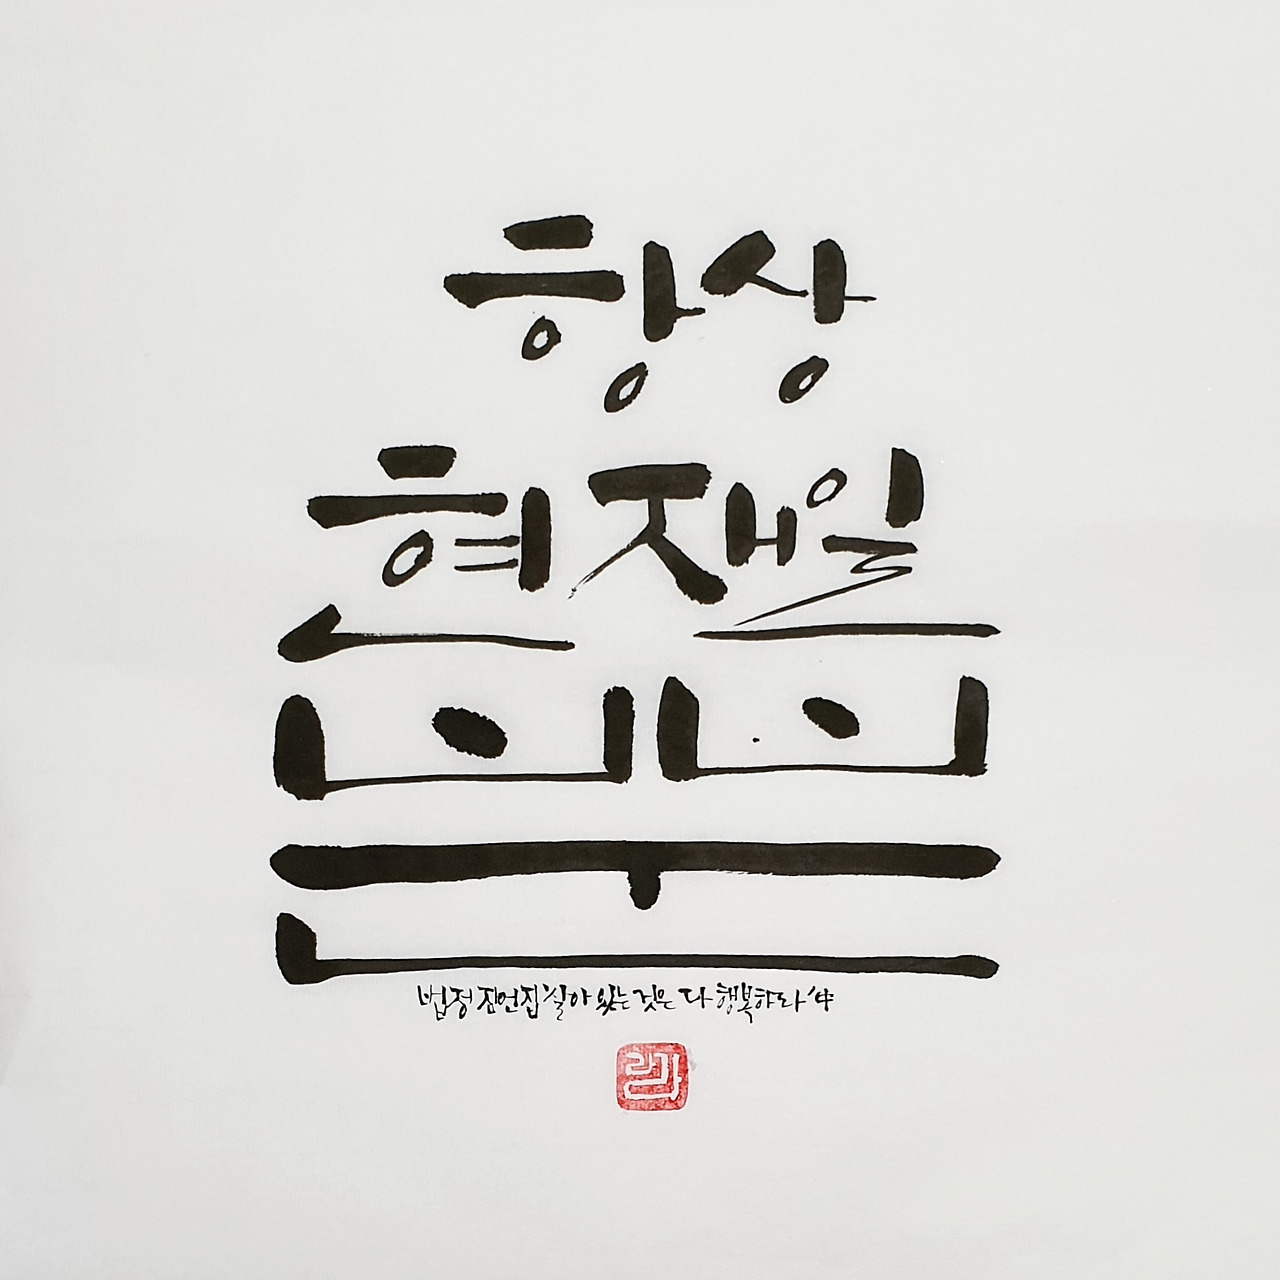 항상
현재일
뿐
법정 잠언집 '살아 있는 것은 다 행복하라' 中